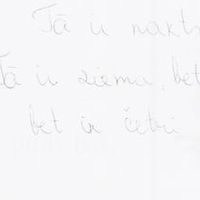 Tā ir nakts
Tā ir ziema, bet
bet ir četri